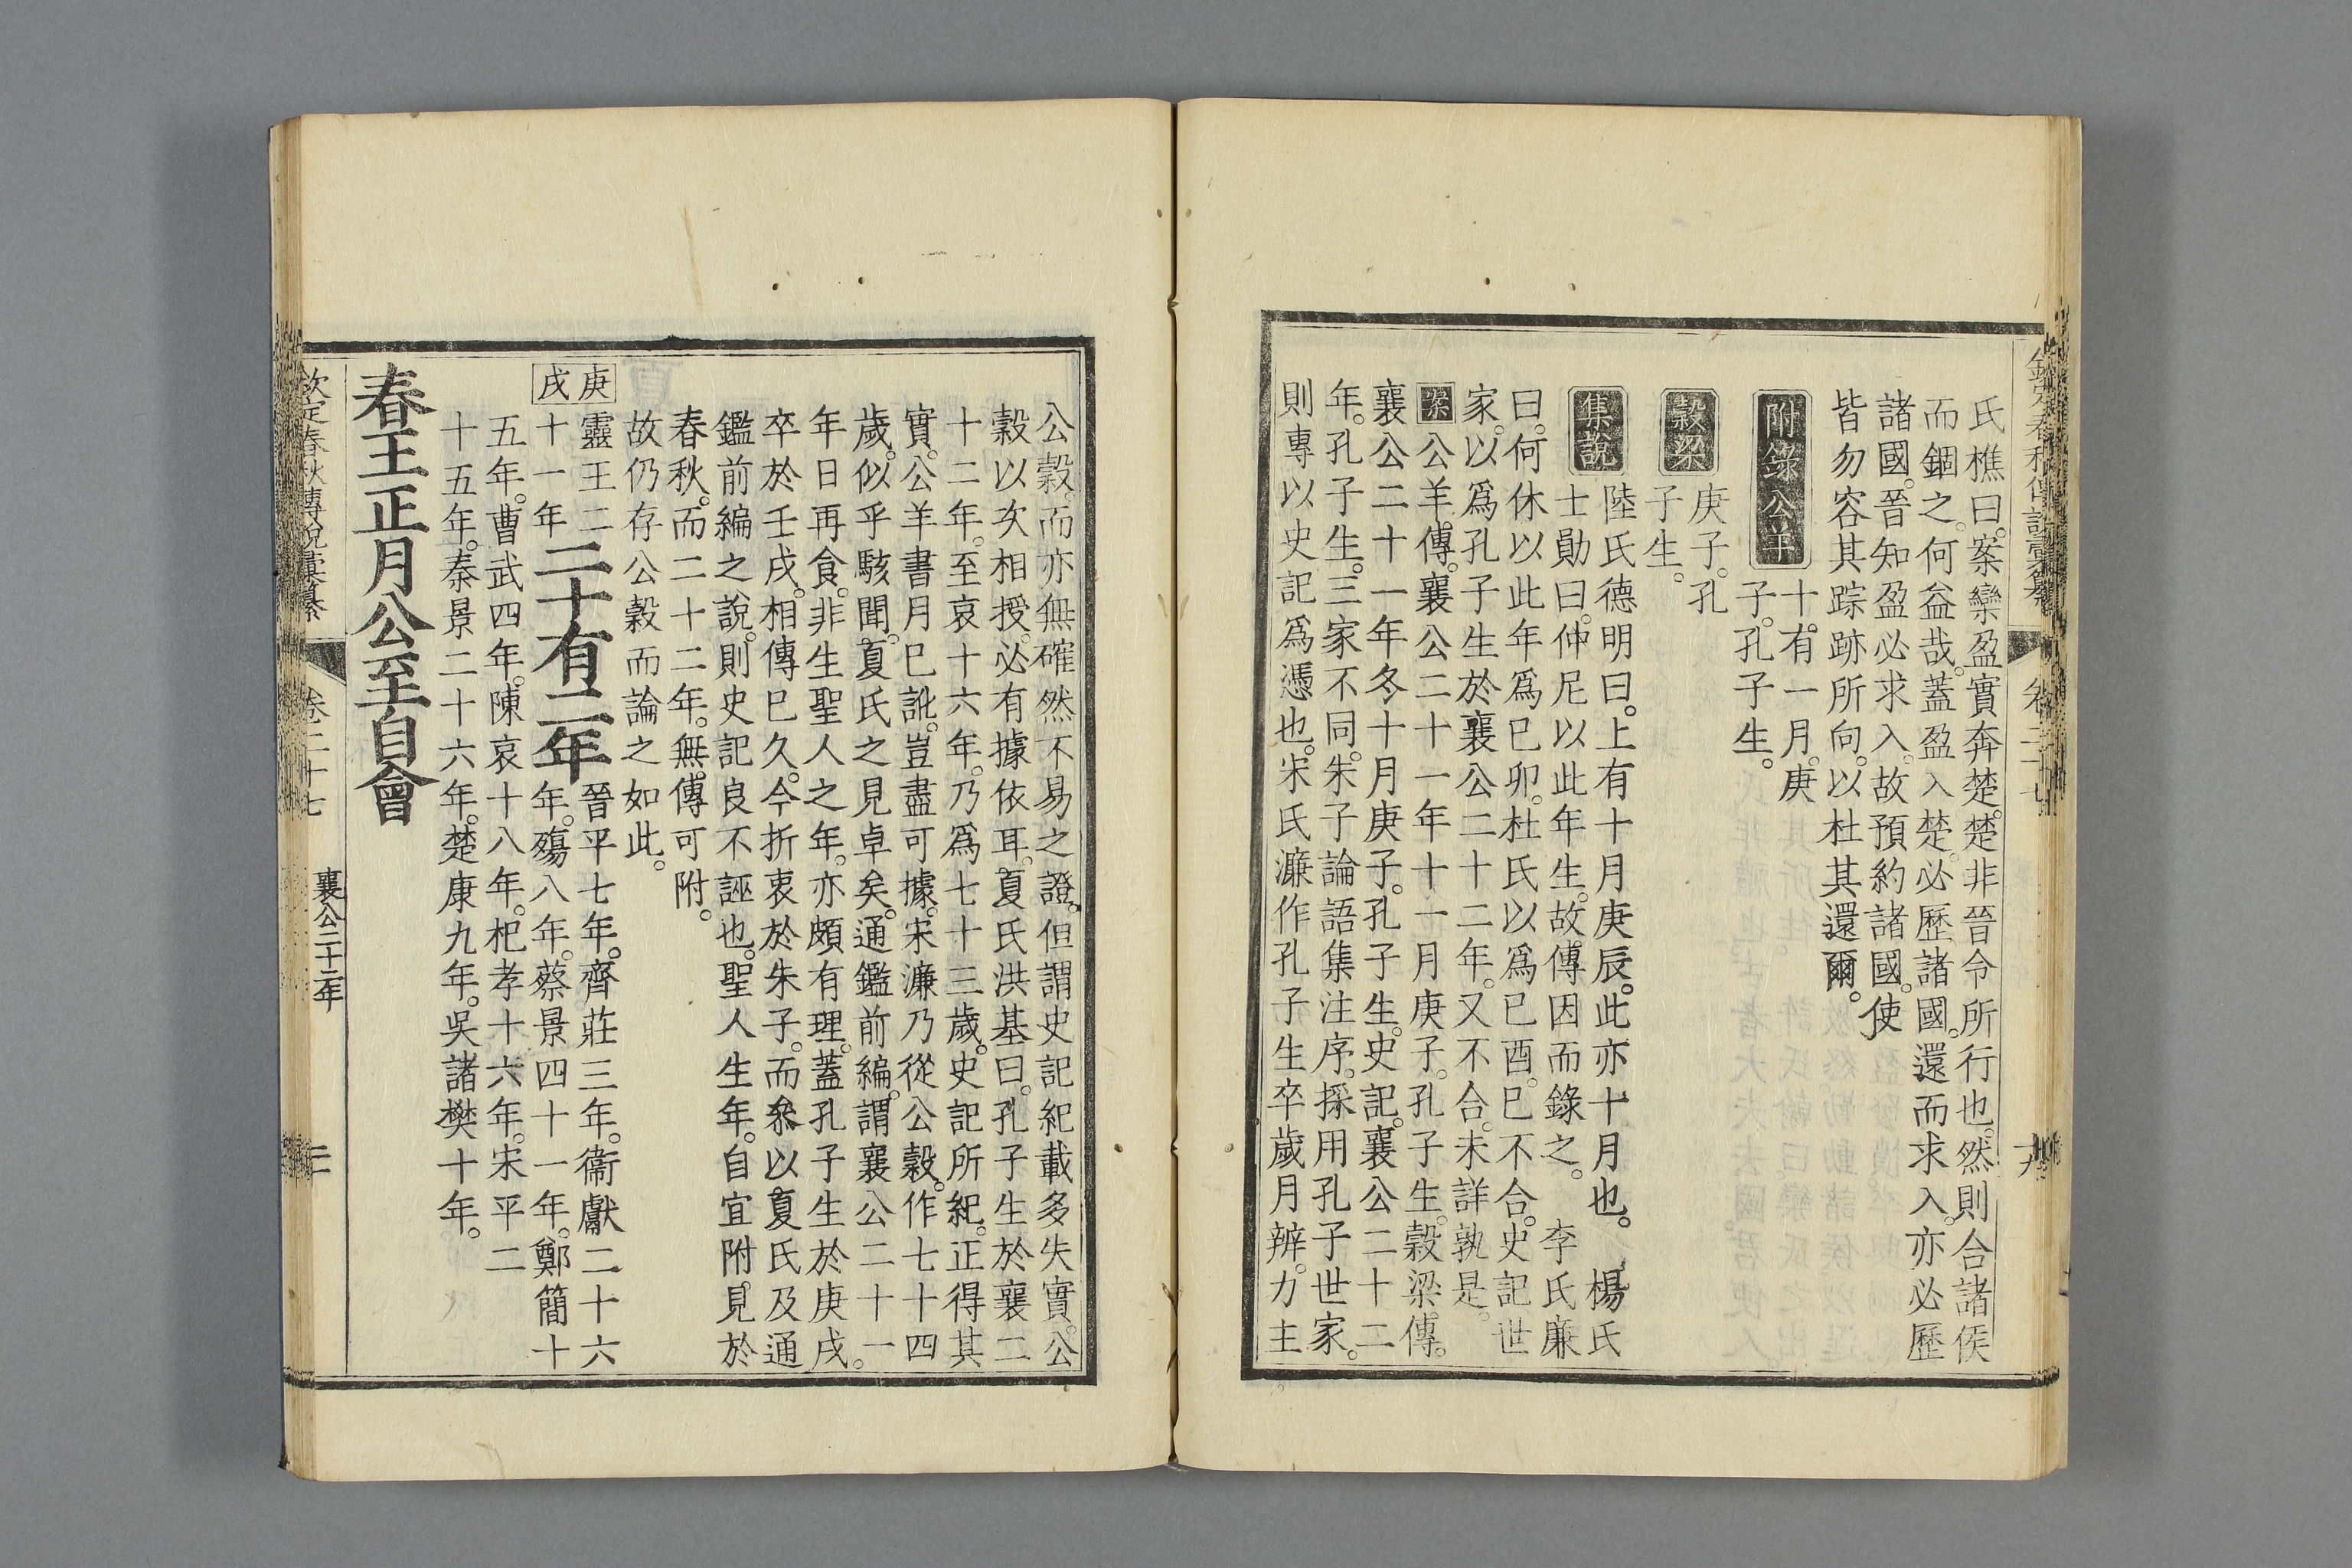 氏樵曰。案欒盈實奔楚。楚非晉令所行也。然則合諸侯
而錮之。何益哉。蓋盈入楚。必歷諸國。還而求入。亦必歷
諸國。晉知盈必求入。故預約諸國。使
皆勿容其踪跡所向。以杜其還爾。
附錄公羊
十。有一月。庚
子。孔子生。
穀梁
庚子。孔
子生。
集說
陸氏德明曰。上有十月庚辰。此亦十月也。 楊氏
士勛曰。仲尼以此年生。故傳因而錄之。 李氏廉
曰。何休以此年爲巳卯。杜氏以爲巳酉。巳不合。史記世
家。以爲孔子生於襄公二十二年。又不合。未詳孰是。
案公羊傳。襄公二十一年十一月庚子。孔子生。穀梁傳。
襄公二十一年冬十月庚子。孔子生。史記。襄公二十二
年。孔子生。三家不同。朱子論語集注序。採用孔子世家。
則專以史記爲憑也。宋氏濂作孔子生卒歲月辨。力主
公穀。而亦無確然不易之證。但謂史記紀載多失實。公
穀以次相授。必有據依耳。夏氏洪基曰。孔子生於襄二
十二年。至哀十六年。乃爲七十三歲。史記所紀。正得其
實。公羊書月巳訛。豈盡可據。宋濂乃從公穀。作七十四
歲。似乎駭聞。夏氏之見卓矣。通鑑前編。謂襄公二十一
年日再食。非生聖人之年。亦頗有理。蓋孔子生於庚戌。
卒於壬戌。相傳巳久。今折衷於朱子。而叅以夏氏及通
鑑前編之說。則史記良不誣也。聖人生年。自宜附見於
春秋。而二十二年。無傳可附。
故仍存公穀而論之如此。
庚戌
靈王二
十一年
二十有二年
晉平七年。齊莊三年。衞獻二十六
年。殤八年。蔡景四十一年。鄭簡十
五年。曹武四年。陳哀十八年。杞孝十六年。宋平二
十五年。秦景二十六年。楚康九年。吳諸樊十年。
春王正月公至自會
欽定春秋傳說彙纂
卷二十七
襄公二十二年